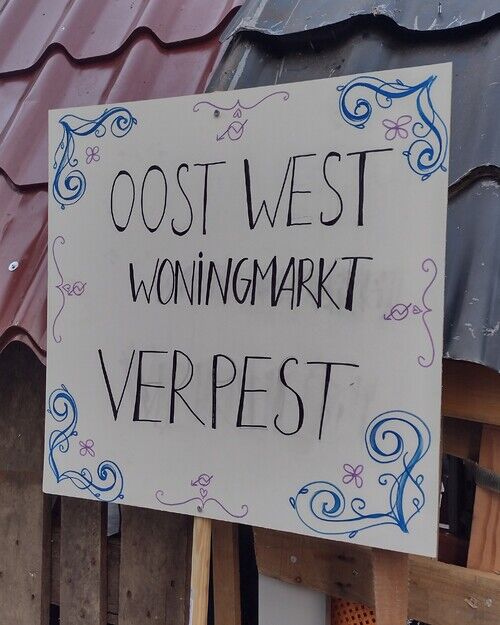 OOST WEST
WONiNGMARKT
VERPEST